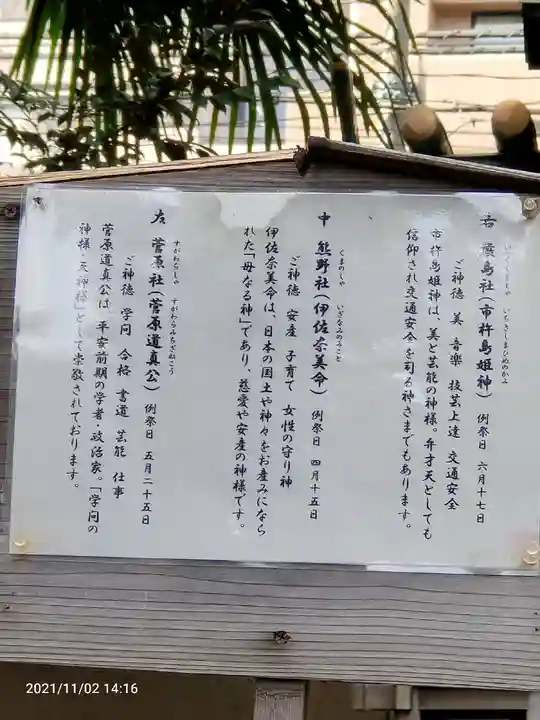 いつくしましゃ いちきしまひめのかみ
右 厳島社（市杵島姫神） 例祭日 六月十七日
ご神徳 美 音楽 技芸上達 交通安全
市杵島姫神は、美と芸能の神様。弁才天としても
信仰され交通安全を司る神さまでもあります。
くまのしゃ いざなみのみこと
中 熊野社（伊佐奈美命） 例祭日 四月十五日
ご神徳 安産 子育て 女性の守り神
伊佐奈美命は、日本の国土や神々をお産みになら
れた「母なる神」であり、慈愛や安産の神様です。
すがわらしゃ すがわらみちざねこう
左 菅原社（菅原道真公） 例祭日 五月二十五日
ご神徳 学問 合格 書道 芸能 仕事
菅原道真公は、平安前期の学者・政治家。「学問の
神様・天神様」として崇敬されております。
2021/11/02 14:16